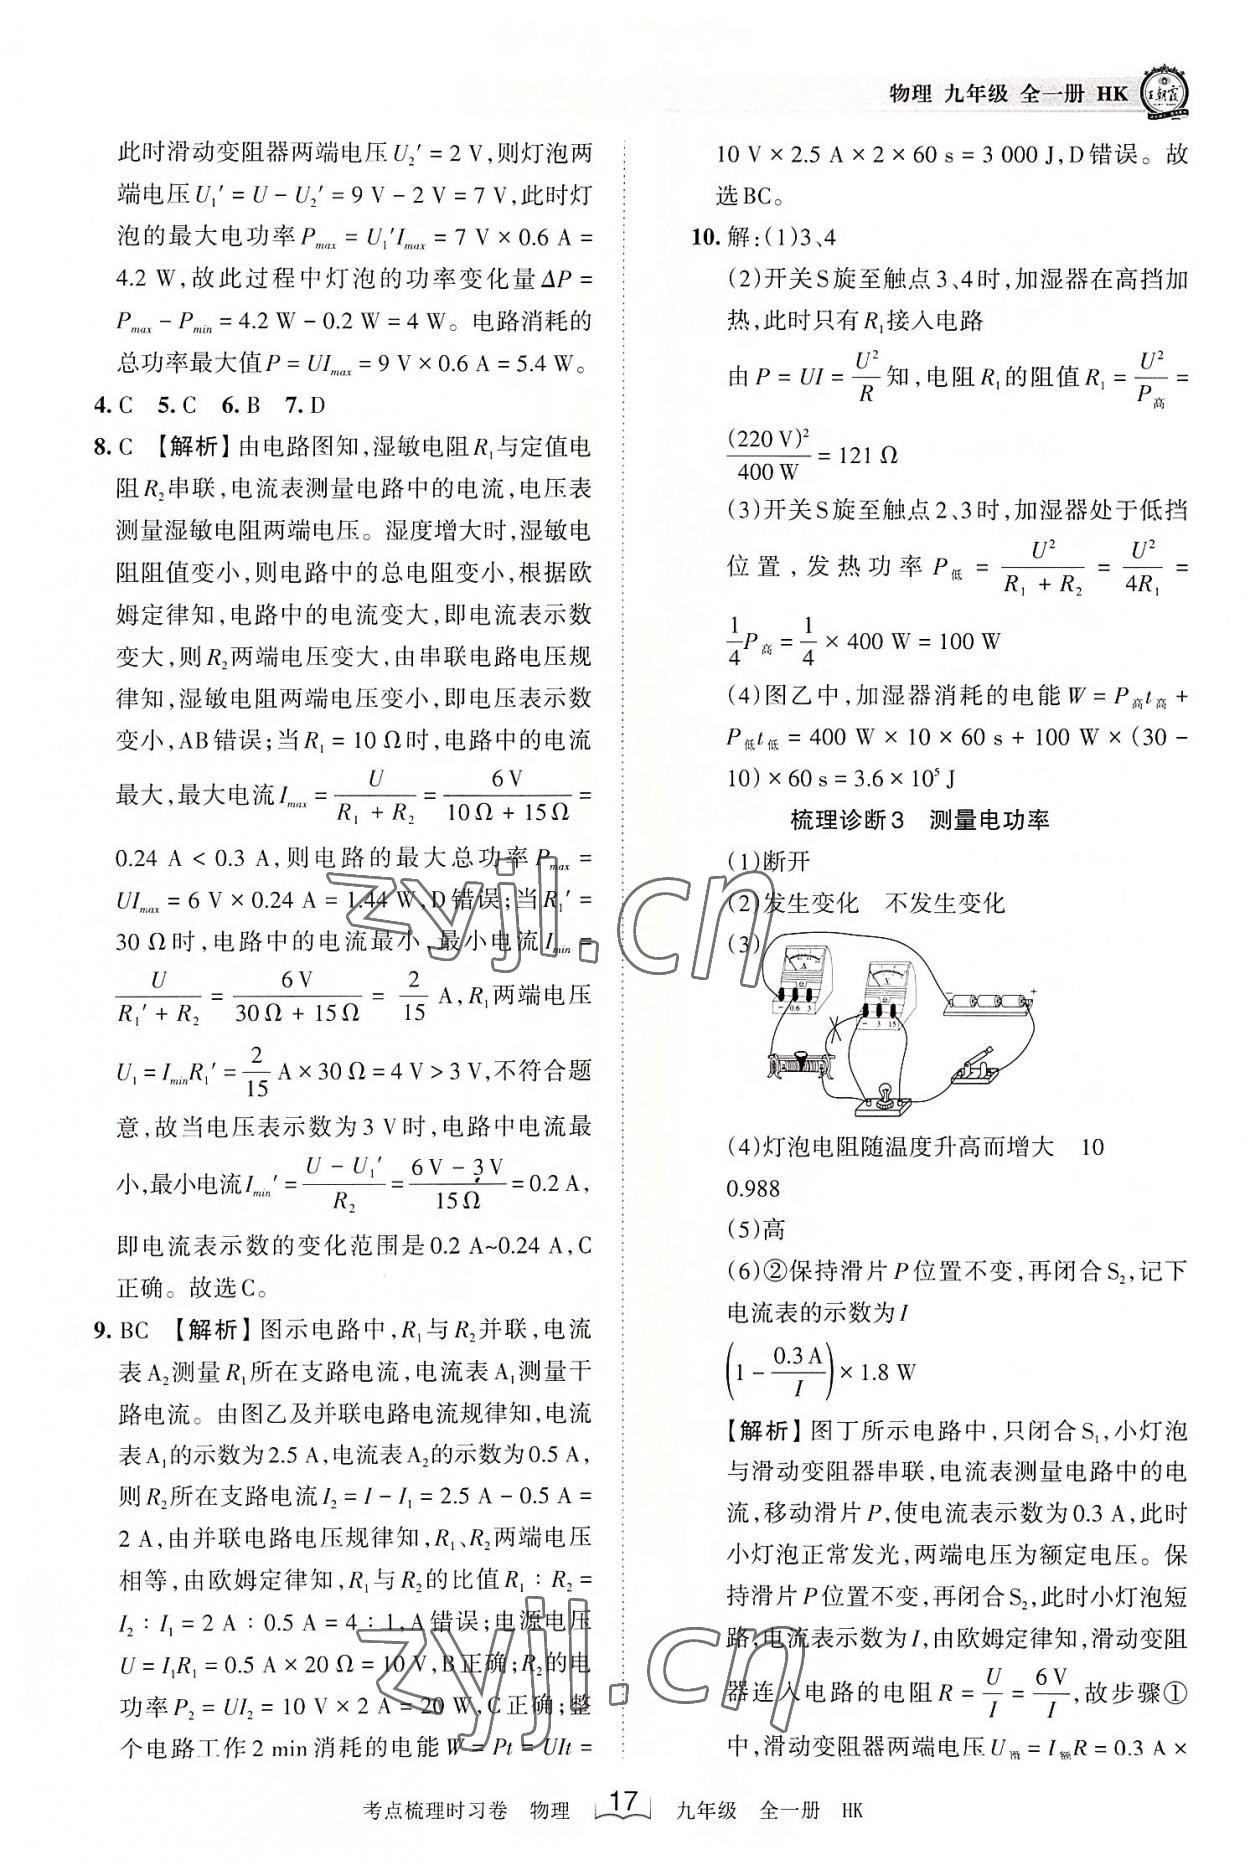 物理 九年级 全一册 HK
王朝霞
此时滑动变阻器两端电压U₂′=2 V,则灯泡两
端电压U₁′=U-U₂′=9 V-2 V=7 V,此时灯
泡的最大电功率Pmax=U₁′Imax=7 V×0.6 A=
4.2 W,故此过程中灯泡的功率变化量ΔP=
Pmax-Pmin=4.2 W-0.2 W=4 W。电路消耗的
总功率最大值P=UImax=9 V×0.6 A=5.4 W。
4. C 5. C 6. B 7. D
8. C 【解析】由电路图知,湿敏电阻R₁与定值电
阻R₂串联,电流表测量电路中的电流,电压表
测量湿敏电阻两端电压。湿度增大时,湿敏电
阻阻值变小,则电路中的总电阻变小,根据欧
姆定律知,电路中的电流变大,即电流表示数
变大,则R₂两端电压变大,由串联电路电压规
律知,湿敏电阻两端电压变小,即电压表示数
变小,AB错误;当R₁=10 Ω时,电路中的电流
最大,最大电流Imax=U/(R₁+R₂)=6 V/(10 Ω+15 Ω)=
0.24 A<0.3 A,则电路的最大总功率Pmax=
UImax=6 V×0.24 A=1.44 W,D错误;当R₁′=
30 Ω时,电路中的电流最小,最小电流Imin=
U/(R₁′+R₂)=6 V/(30 Ω+15 Ω)=2/15 A,R₁两端电压
U₁=IminR₁′=2/15 A×30 Ω=4 V>3 V,不符合题
意,故当电压表示数为3 V时,电路中电流最
小,最小电流Imin′=(U-U₁′)/R₂=(6 V-3 V)/15 Ω=0.2 A,
即电流表示数的变化范围是0.2 A~0.24 A,C
正确。故选C。
9. BC 【解析】图示电路中,R₁与R₂并联,电流
表A₂测量R₁所在支路电流,电流表A₁测量干
路电流。由图乙及并联电路电流规律知,电流
表A₁的示数为2.5 A,电流表A₂的示数为0.5 A,
则R₂所在支路电流I₂=I-I₁=2.5 A-0.5 A=
2 A,由并联电路电压规律知,R₁、R₂两端电压
相等,由欧姆定律知,R₁与R₂的比值R₁:R₂=
I₂:I₁=2 A:0.5 A=4:1,A错误;电源电压
U=I₁R₁=0.5 A×20 Ω=10 V,B正确;R₂的电
功率P₂=UI₂=10 V×2 A=20 W,C正确;整
个电路工作2 min消耗的电能W=Pt=UIt=
10 V×2.5 A×2×60 s=3 000 J,D错误。故
选BC。
10. 解:(1)3、4
(2)开关S旋至触点3、4时,加湿器在高挡加
热,此时只有R₁接入电路
由P=UI=U²/R知,电阻R₁的阻值R₁=U²/P高=
(220 V)²/400 W=121 Ω
(3)开关S旋至触点2、3时,加湿器处于低挡
位置,发热功率P低=U²/(R₁+R₂)=U²/4R₁=
1/4P高=1/4×400 W=100 W
(4)图乙中,加湿器消耗的电能W=P高t高+
P低t低=400 W×10×60 s+100 W×(30-
10)×60 s=3.6×10⁵ J
梳理诊断3 测量电功率
(1)断开
(2)发生变化 不发生变化
(3)
A
- 0.6 3
V
- 3 15
- +
(4)灯泡电阻随温度升高而增大 10
0.988
(5)高
(6)②保持滑片P位置不变,再闭合S₂,记下
电流表的示数为I
(1-0.3 A/I)×1.8 W
【解析】图丁所示电路中,只闭合S₁,小灯泡
与滑动变阻器串联,电流表测量电路中的电
流,移动滑片P,使电流表示数为0.3 A,此时
小灯泡正常发光,两端电压为额定电压。保
持滑片P位置不变,再闭合S₂,此时小灯泡短
路,电流表示数为I,由欧姆定律知,滑动变阻
器连入电路的电阻R=U/I=6 V/I,故步骤①
中,滑动变阻器两端电压U滑=I额R=0.3 A×
zyjl.cn
zyjl.cn
考点梳理时习卷 物理 17 九年级 全一册 HK